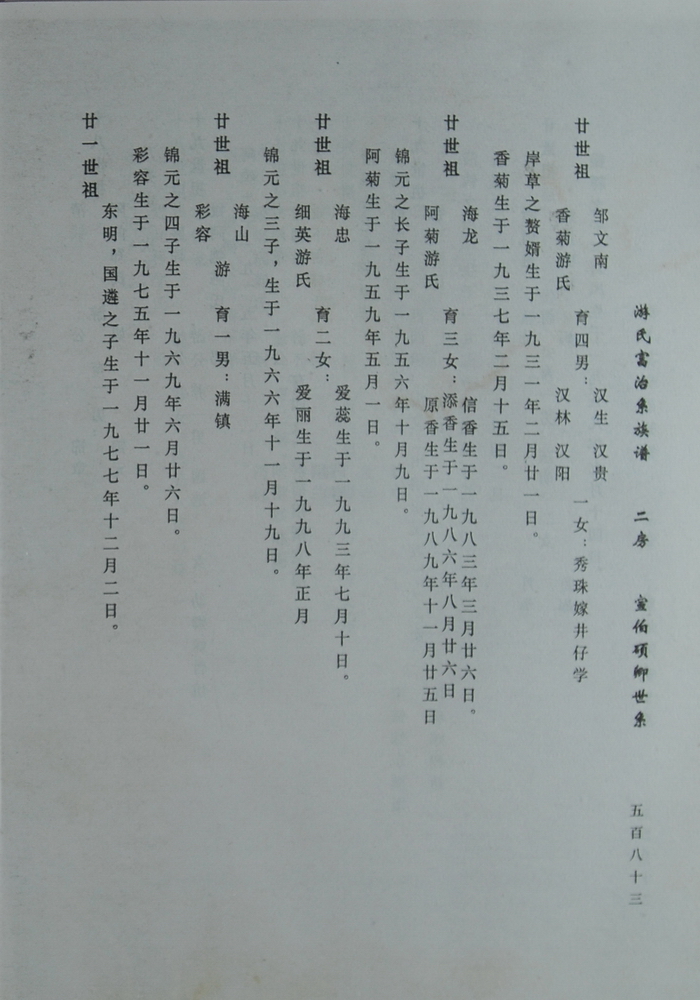 游氏富治系族谱 二房 宣伯硕卿世系 五百八十三
邹文南 汉生 汉贵
廿世祖 育四男： 一女：秀珠嫁井仔学
香菊游氏 汉林 汉阳
岸草之赘婿生于一九三一年二月廿一日。
香菊生于一九三七年二月十五日。
海龙 信香生于一九八三年三月廿六日。
廿世祖 育三女：添香生于一九八六年八月廿六日
阿菊游氏 原香生于一九八九年十一月廿五日
锦元之长子生于一九五六年十月九日。
阿菊生于一九五九年五月一日。
海忠 爱蕊生于一九九三年七月十日。
廿世祖 育二女：
细英游氏 爱丽生于一九九八年正月
锦元之三子，生于一九六六年十一月十九日。
海山
廿世祖 游 育一男：满镇
彩容
锦元之四子生于一九六九年六月廿六日。
彩容生于一九七五年十一月廿一日。
东明，国遴之子生于一九七七年十二月二日。
廿一世祖